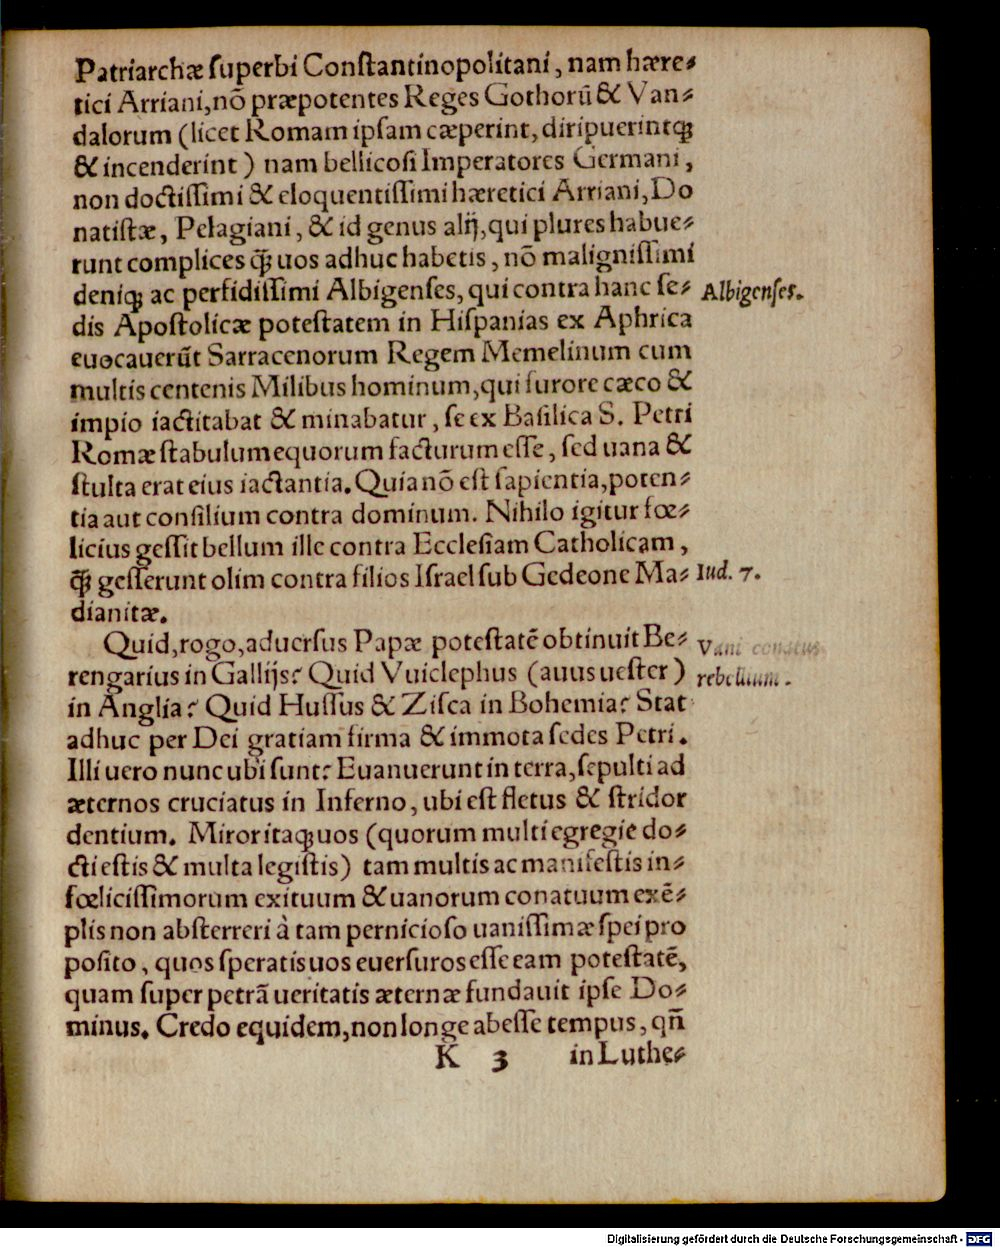 Patriarchæ ſuperbi Conſtantinopolitani, nam hære⸗
tici Arriani, nõ præpotentes Reges Gothorũ & Van⸗
dalorum (licet Romam ipſam cæperint, diripuerintꝗ
& incenderint) nam bellicoſi Imperatores Germani,
non doctiſſimi & eloquentiſſimi hæretici Arriani, Do
natiſtæ, Pelagiani, & id genus alij, qui plures habue⸗
runt complices ꝗ̃ uos adhuc habetis, nõ maligniſſimi
deniꝗ ac perfidiſſimi Albigenſes, qui contra hanc ſe⸗
Albigenſes.
dis Apoſtolicæ poteſtatem in Hiſpanias ex Aphrica
euocauerũt Sarracenorum Regem Memelinum cum
multis centenis Milibus hominum, qui furore cæco &
impio iactitabat & minabatur, ſe ex Baſilica S. Petri
Romæ ſtabulum equorum facturum eſſe, ſed uana &
ſtulta erat eius iactantia. Quia nõ eſt ſapientia, poten⸗
tia aut conſilium contra dominum. Nihilo igitur fœ⸗
licius geſſit bellum ille contra Eccleſiam Catholicam,
ꝗ̃ geſſerunt olim contra filios Iſrael ſub Gedeone Ma⸗
Iud. 7.
dianitæ.
Quid, rogo, aduerſus Papæ poteſtatẽ obtinuit Be⸗
Vani conatus
rengarius in Gallijs? Quid Vuiclephus (auus ueſter)
rebellium.
in Anglia? Quid Huſſus & Ziſca in Bohemia? Stat
adhuc per Dei gratiam firma & immota ſedes Petri.
Illi uero nunc ubi ſunt? Euanuerunt in terra, ſepulti ad
æternos cruciatus in Inferno, ubi eſt fletus & ſtridor
dentium. Miror itaꝗ uos (quorum multi egregie do⸗
cti eſtis & multa legiſtis) tam multis ac manifeſtis in⸗
fœliciſſimorum exituum & uanorum conatuum exẽ⸗
plis non abſterreri à tam pernicioſo uaniſſimæ ſpei pro
poſito, quos ſperatis uos euerſuros eſſe eam poteſtatẽ,
quam ſuper petrã ueritatis æternæ fundauit ipſe Do⸗
minus. Credo equidem, non longe abeſſe tempus, qñ
K 3 in Luthe⸗
Digitalisierung gefördert durch die Deutsche Forschungsgemeinschaft - DFG